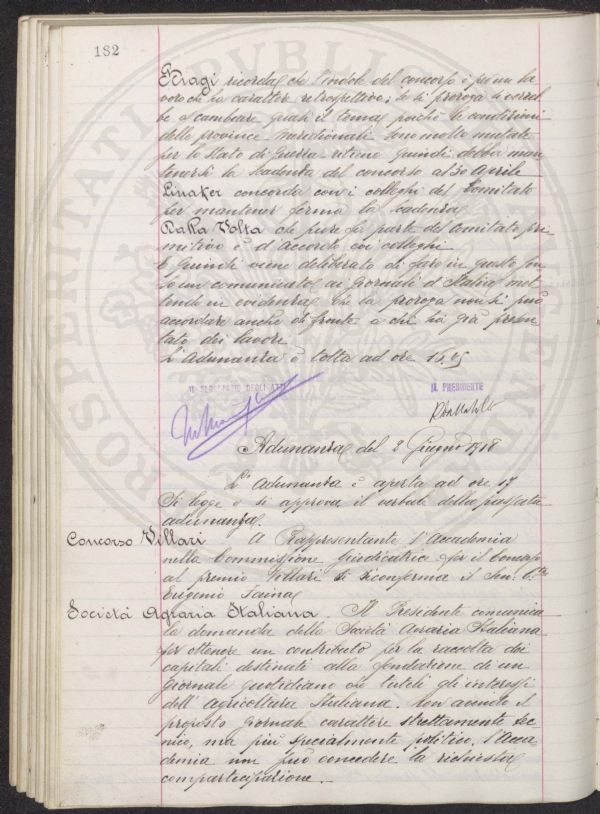 182
Bragi ricorda che l'indole del concorso è per un la
voro che ha carattere retrospettivo; se si proroga si verreb
be a cambiare quasi il tema, poiché le condizioni
delle province meridionali sono molto mutate
per lo stato di guerra ritiene quindi debba man
tenersi la scadenza del concorso al 30 Aprile
Linaker concorda con i colleghi del Comitato
per mantener ferma la scadenza
Dalla Volta che pure fa parte del Comitato pri
mitivo è d'accordo coi colleghi
E quindi viene deliberato di fare in questo sen
so un comunicato ai giornali d'Italia met
tendo in evidenza che la proroga non si può
accordare anche di fronte a chi ha già presen
tato dei lavori
L'adunanza è tolta ad ore
IL SEGRETARIO DEGLI ATTI
IL PRESIDENTE
Adunanza del 2 Giugno 1918
L'adunanza è aperta ad ore 17
Si legge e si approva il verbale della passata
adunanza.
Concorso Villari A Rappresentante l'Accademia
nella Commissione Giudicatrice per il Concorso
al premio Villari si riconferma il Sen.
Eugenio Faina
Società Agraria Italiana. Il Presidente comunica
la domanda della Società Agraria Italiana
per ottenere un contributo per la raccolta dei
capitali destinati alla fondazione di un
giornale quotidiano che tuteli gli interessi
dell'agricoltura Italiana. Non avendo il
proposto giornale carattere strettamente tec
nico, ma più specialmente politico, l'Acca
demia non può concedere la richiesta
compartecipazione.